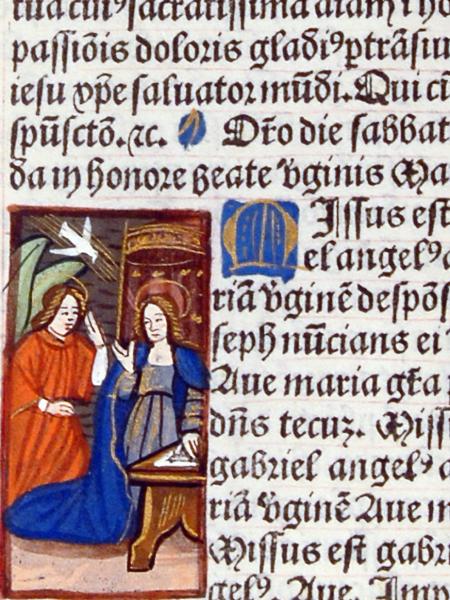 tua cuiꝰ sacratissima aiam i ho
passiōis doloris gladiꝰ ptrāsiu
iesu xp̄e saluator mūdi. Qui cū
spūsctō. ⁊c. Or̄o die sabbat
da in honore beate v̄ginis Ma
Missus est
el angelꝰ a
riā v̄ginē despōs
seph nūcians ei
Aue maria gr̄a
dn̄s tecuꝫ. Miss
gabriel angelꝰ a
riā v̄ginē Aue m
Missus est gabri
gelꝰ. Aue. Imp